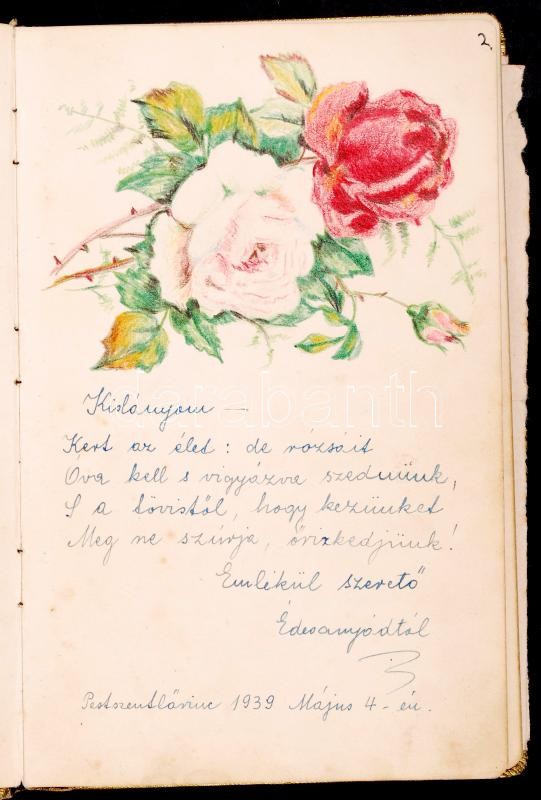 2.
Kislányom —
Kert az élet: de rózsáit
Óva kell s vigyázva szednünk,
S a tövistől, hogy kezünket
Meg ne szúrja, őrizkedjünk!
Emlékül szerető
Édesanyádtól
Pestszentlőrinc 1939 Május 4-én.
darabanth